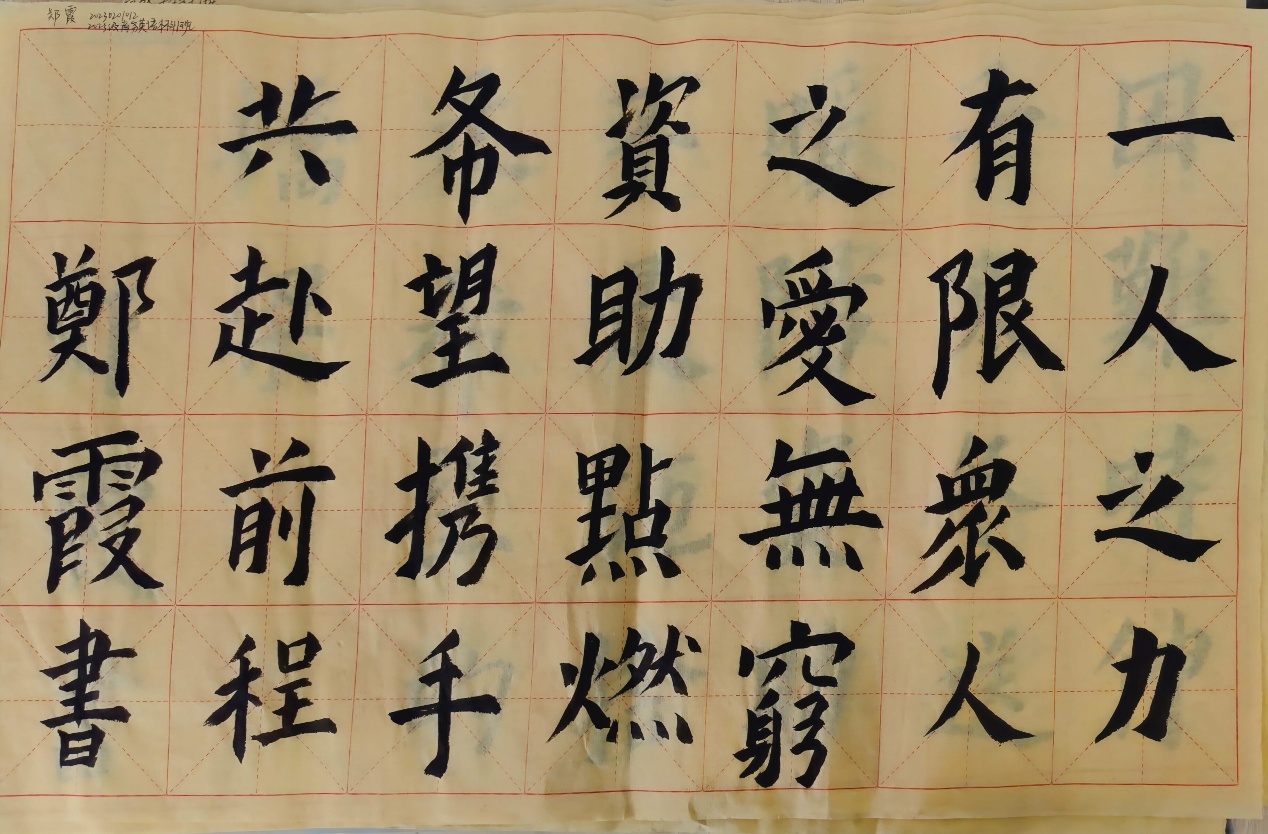 郑霞
一人之力
有限衆人
之愛無窮
資助點燃
希望携手
共赴前程
鄭霞書